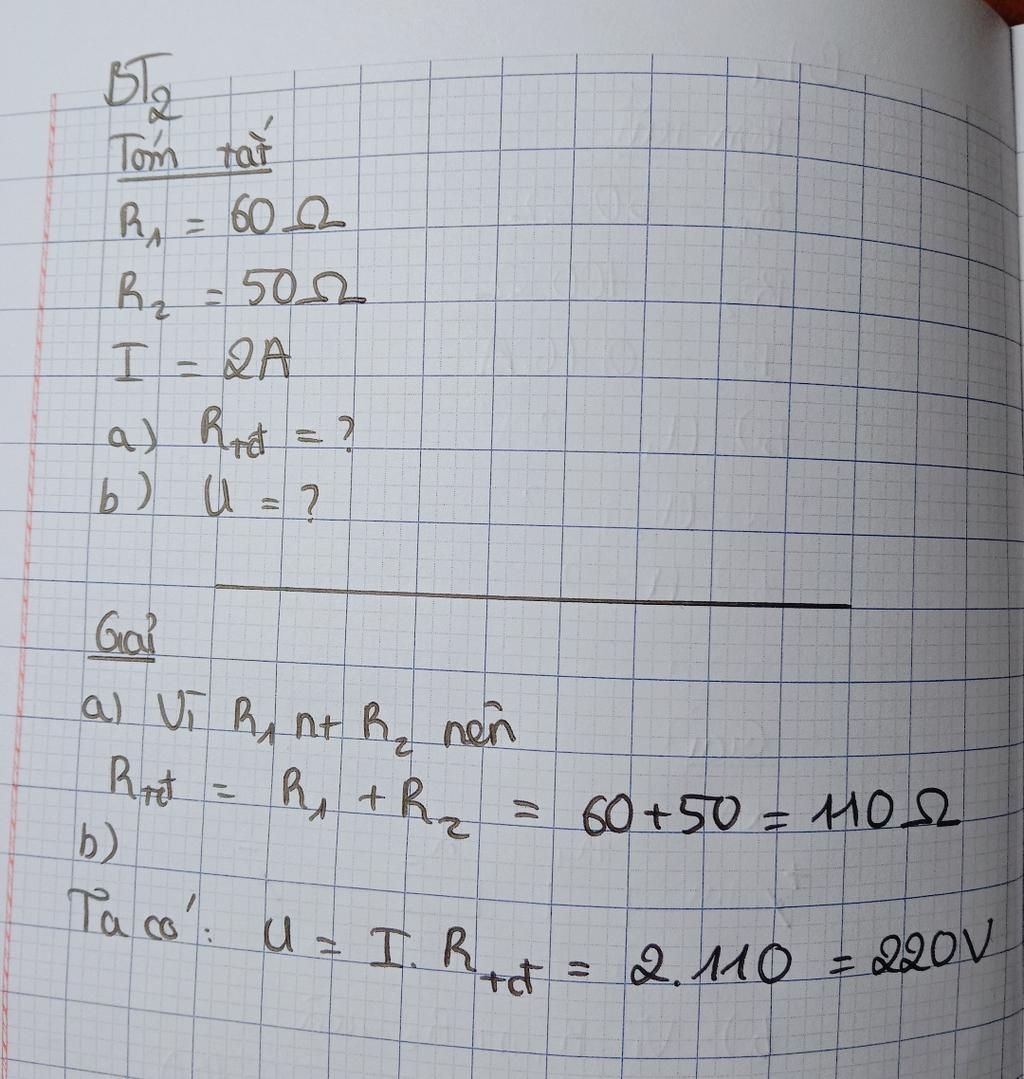 BT2
Tóm tắt
R₁ = 60 Ω
R₂ = 50 Ω
I = 2A
a) Rtđ = ?
b) U = ?
Giải
a) Vì R₁ nt R₂ nên
Rtđ = R₁ + R₂ = 60 + 50 = 110 Ω
b)
Ta có: U = I. Rtđ = 2.110 = 220V